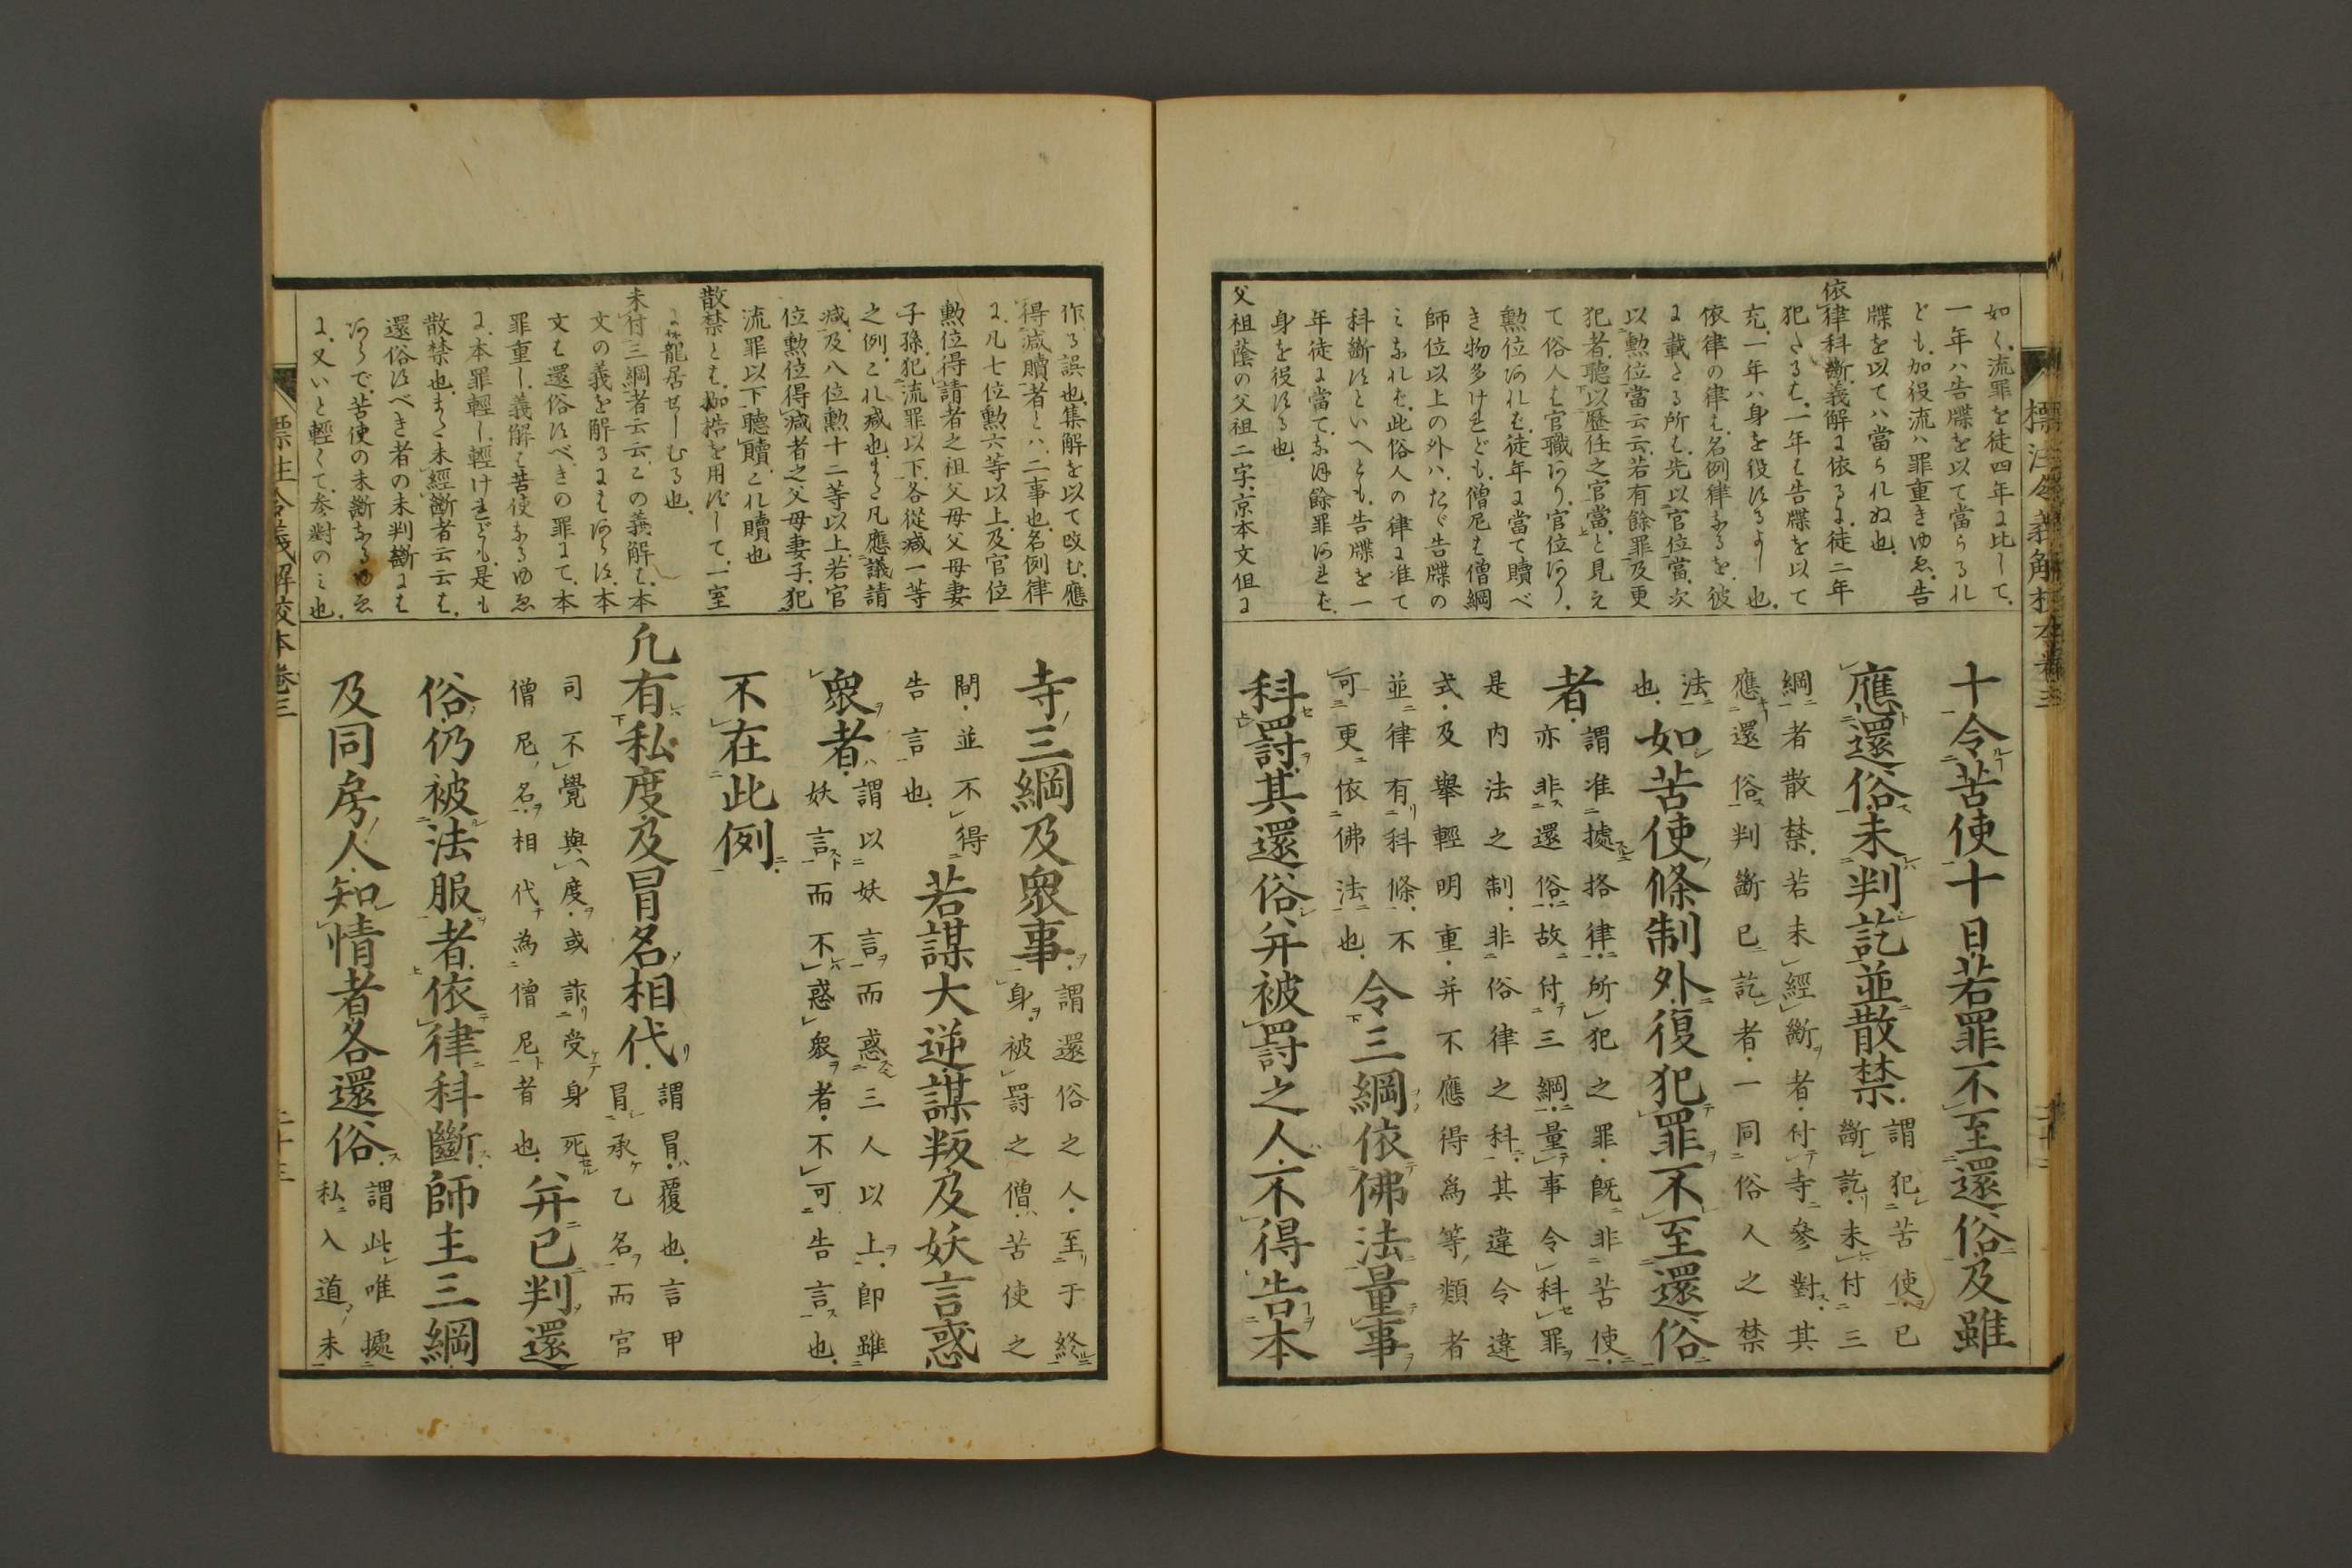 標注令義解校本卷三
如く、流罪を徒四年に比して、
一年ハ告牒を以て當らるれ
ども、加役流ハ罪重きゆゑ、告
牒を以てハ當られぬ也、
依律科斷、義解に依るに、徒二年
犯さるも、一年も告牒を以て
充、一年ハ身を役するよし也、
依律の律も、名例律なるを、彼
に載たる所も、先以官位當、次
以勲位當云云、若有餘罪及更
犯者、聴以歴任之官當、と見え
て俗人も官職あり、官位あり、
勲位あれば、徒年に當て贖べ
き物多けれども、僧尼も僧綱
師位以上の外ハ、たゞ告牒の
みなれば、此俗人の律に准て
科斷すといへとも、告牒を一
年徒に當て、なほ餘罪あれば、
身を役する也、
父祖蔭の父祖二字、京本文但に
十令苦使十日若罪不至還俗及雖
應還俗未判訖並散禁
謂犯苦使已
斷訖未付三
綱者散禁若未經斷者付寺參對其
應還俗判斷已訖者一同俗人之禁
法
也
如苦使條制外復犯罪不至還俗
者
謂准據格律所犯之罪既非苦使
亦非還俗故付三綱量事令科罪
是内法之制非俗律之科其違令違
式及擧輕明重并不應得爲等類者
並律有科條不
可更依佛法也
令三綱依佛法量事
科罸其還俗并被罸之人不得告本
作る誤也、集解を以て改む、應
得減贖者とハ、二事也、名例律
に、凡七位勲六等以上、及官位
勲位得請者之祖父母父母妻
子孫、犯流罪以下、各從減一等
之例、これ減也、また凡應議請
減、及八位勲十二等以上、若官
位勲位得減者之父母妻子、犯
流罪以下聽贖、これ贖也
散禁とも、枷梏を用ずして、一室
に籠居せしむる也、
未付三綱者云云、この義解も、本
文の義を解るにもあらず、本
文も還俗すべきの罪にて、本
罪重し、義解も苦使なるゆゑ
に、本罪輕し、輕けれども、是も
散禁也、また未經斷者云云も、
還俗すべき者の未判斷にも
あらで、苦使の未斷なるゆゑ
に、又いと輕くて、参對のミ也、
寺三綱及衆事
謂還俗之人至于終
身被罸之僧苦使之
間並不得
告言也
若謀大逆謀叛及妖言惑
衆者
謂以妖言而惑三人以上卽雖
妖言而不惑衆者不可告言也
不在此例
凢有私度及冒名相代
謂冒覆也言甲
冒承乙名而官
司不覺與度或詐受身死
僧尼名相代為僧尼者也
并已判還
俗仍被法服者依律科斷師主三綱
及同房人知情者各還俗
謂此唯據
私入道未
標注令義解校本卷三